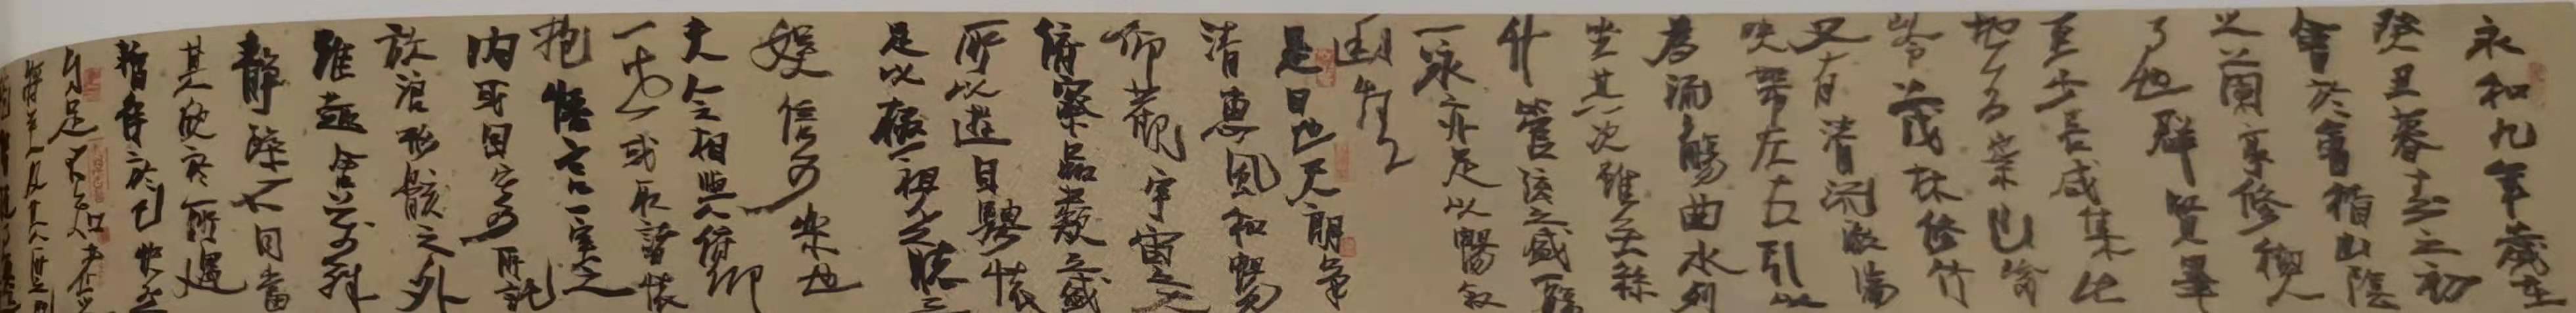 永和九年歲在
癸丑暮春之初
會於會稽山陰
之蘭亭修禊
事也群賢畢
至少長咸集此
地有崇山峻
嶺茂林修竹
又有清流激湍
映帶左右引以
為流觴曲水列
坐其次雖無絲
竹管弦之盛一觴
一詠亦足以暢敘
幽情
是日也天朗氣
清惠風和暢
仰觀宇宙之大
俯察品類之盛
所以遊目騁懷
足以極視聽之
娛信可樂也
夫人之相與俯仰
一世或取諸懷
抱悟言一室之
內或因寄所託
放浪形骸之外
雖趣舍萬殊
靜躁不同當
其欣於所遇
暫得於己快然
自足不知老